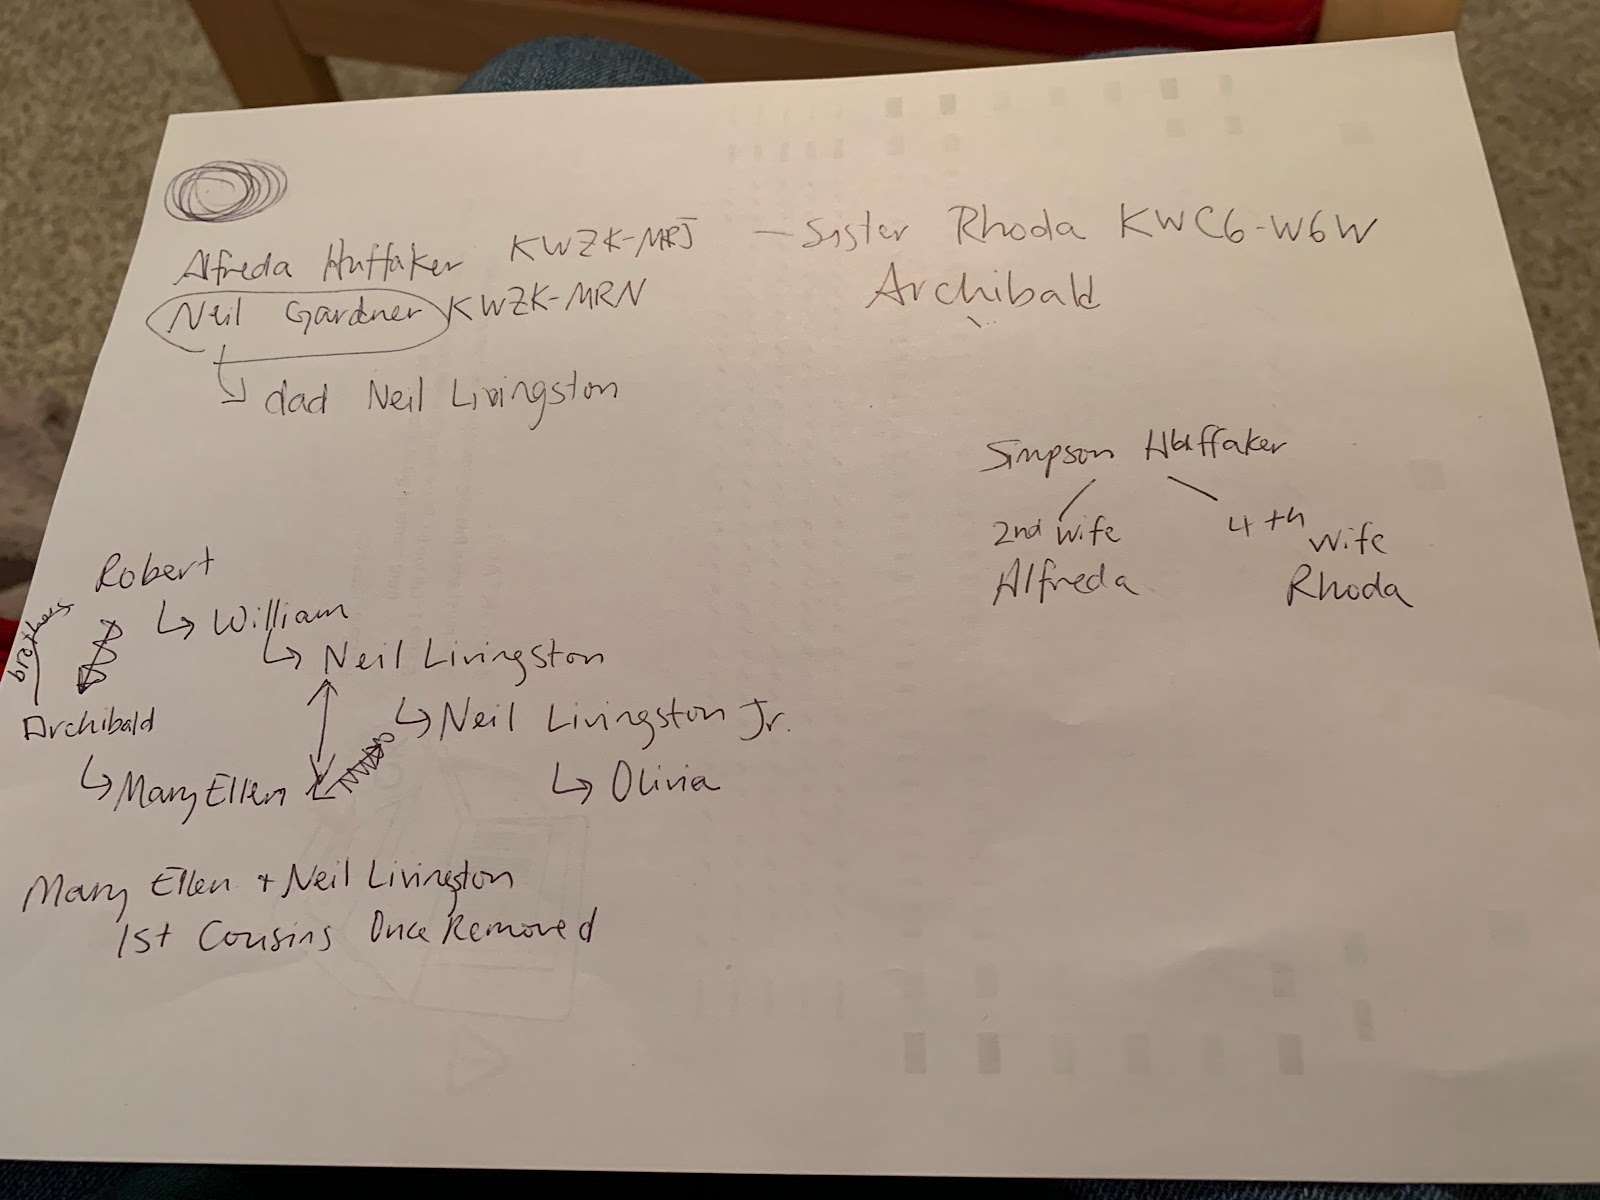 Alfreda Huffaker KWZK-MRJ — Sister Rhoda KWC6-W6W
Neil Gardner KWZK-MRN
Archibald
↳ dad Neil Livingston
Simpson Huffaker
2nd wife
Alfreda
4th wife
Rhoda
Robert
brothers
↳ William
↳ Neil Livingston
Archibald
↳ Neil Livingston Jr.
↳ Mary Ellen
↳ Olivia
Mary Ellen + Neil Livingston
1st Cousins Once Removed